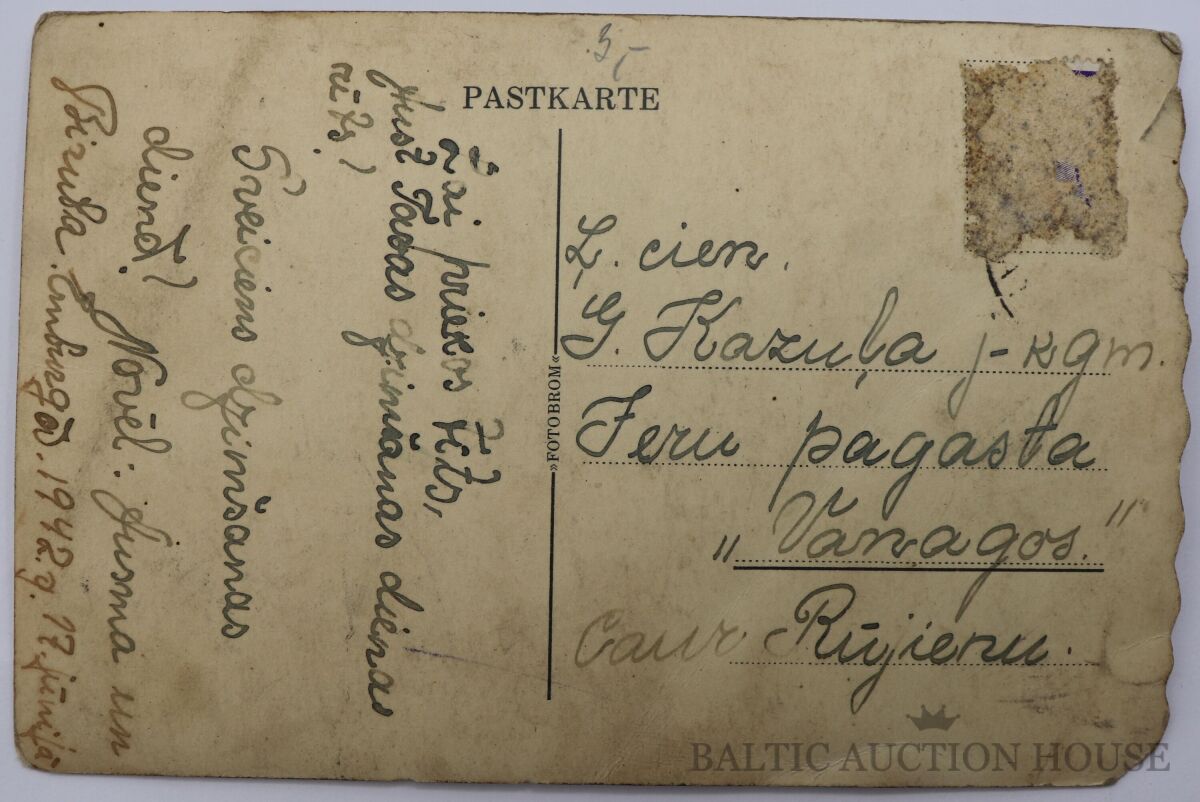 3,-
PASTKARTE
Lai priekos kļs,
just Tavas dzimšanas dienas
rīts!
Sveiciens dzimšanas
dienā!
Novēl: Ausma un
Biruta. Emburgā. 1942. g. 17. jūnijā
»FOTOBROM«
Ļ. cien.
G. Kazuļa j-kgm.
Jeru pagasta
„Vanagos."
Caur Rūjienu.
BALTIC AUCTION HOUSE